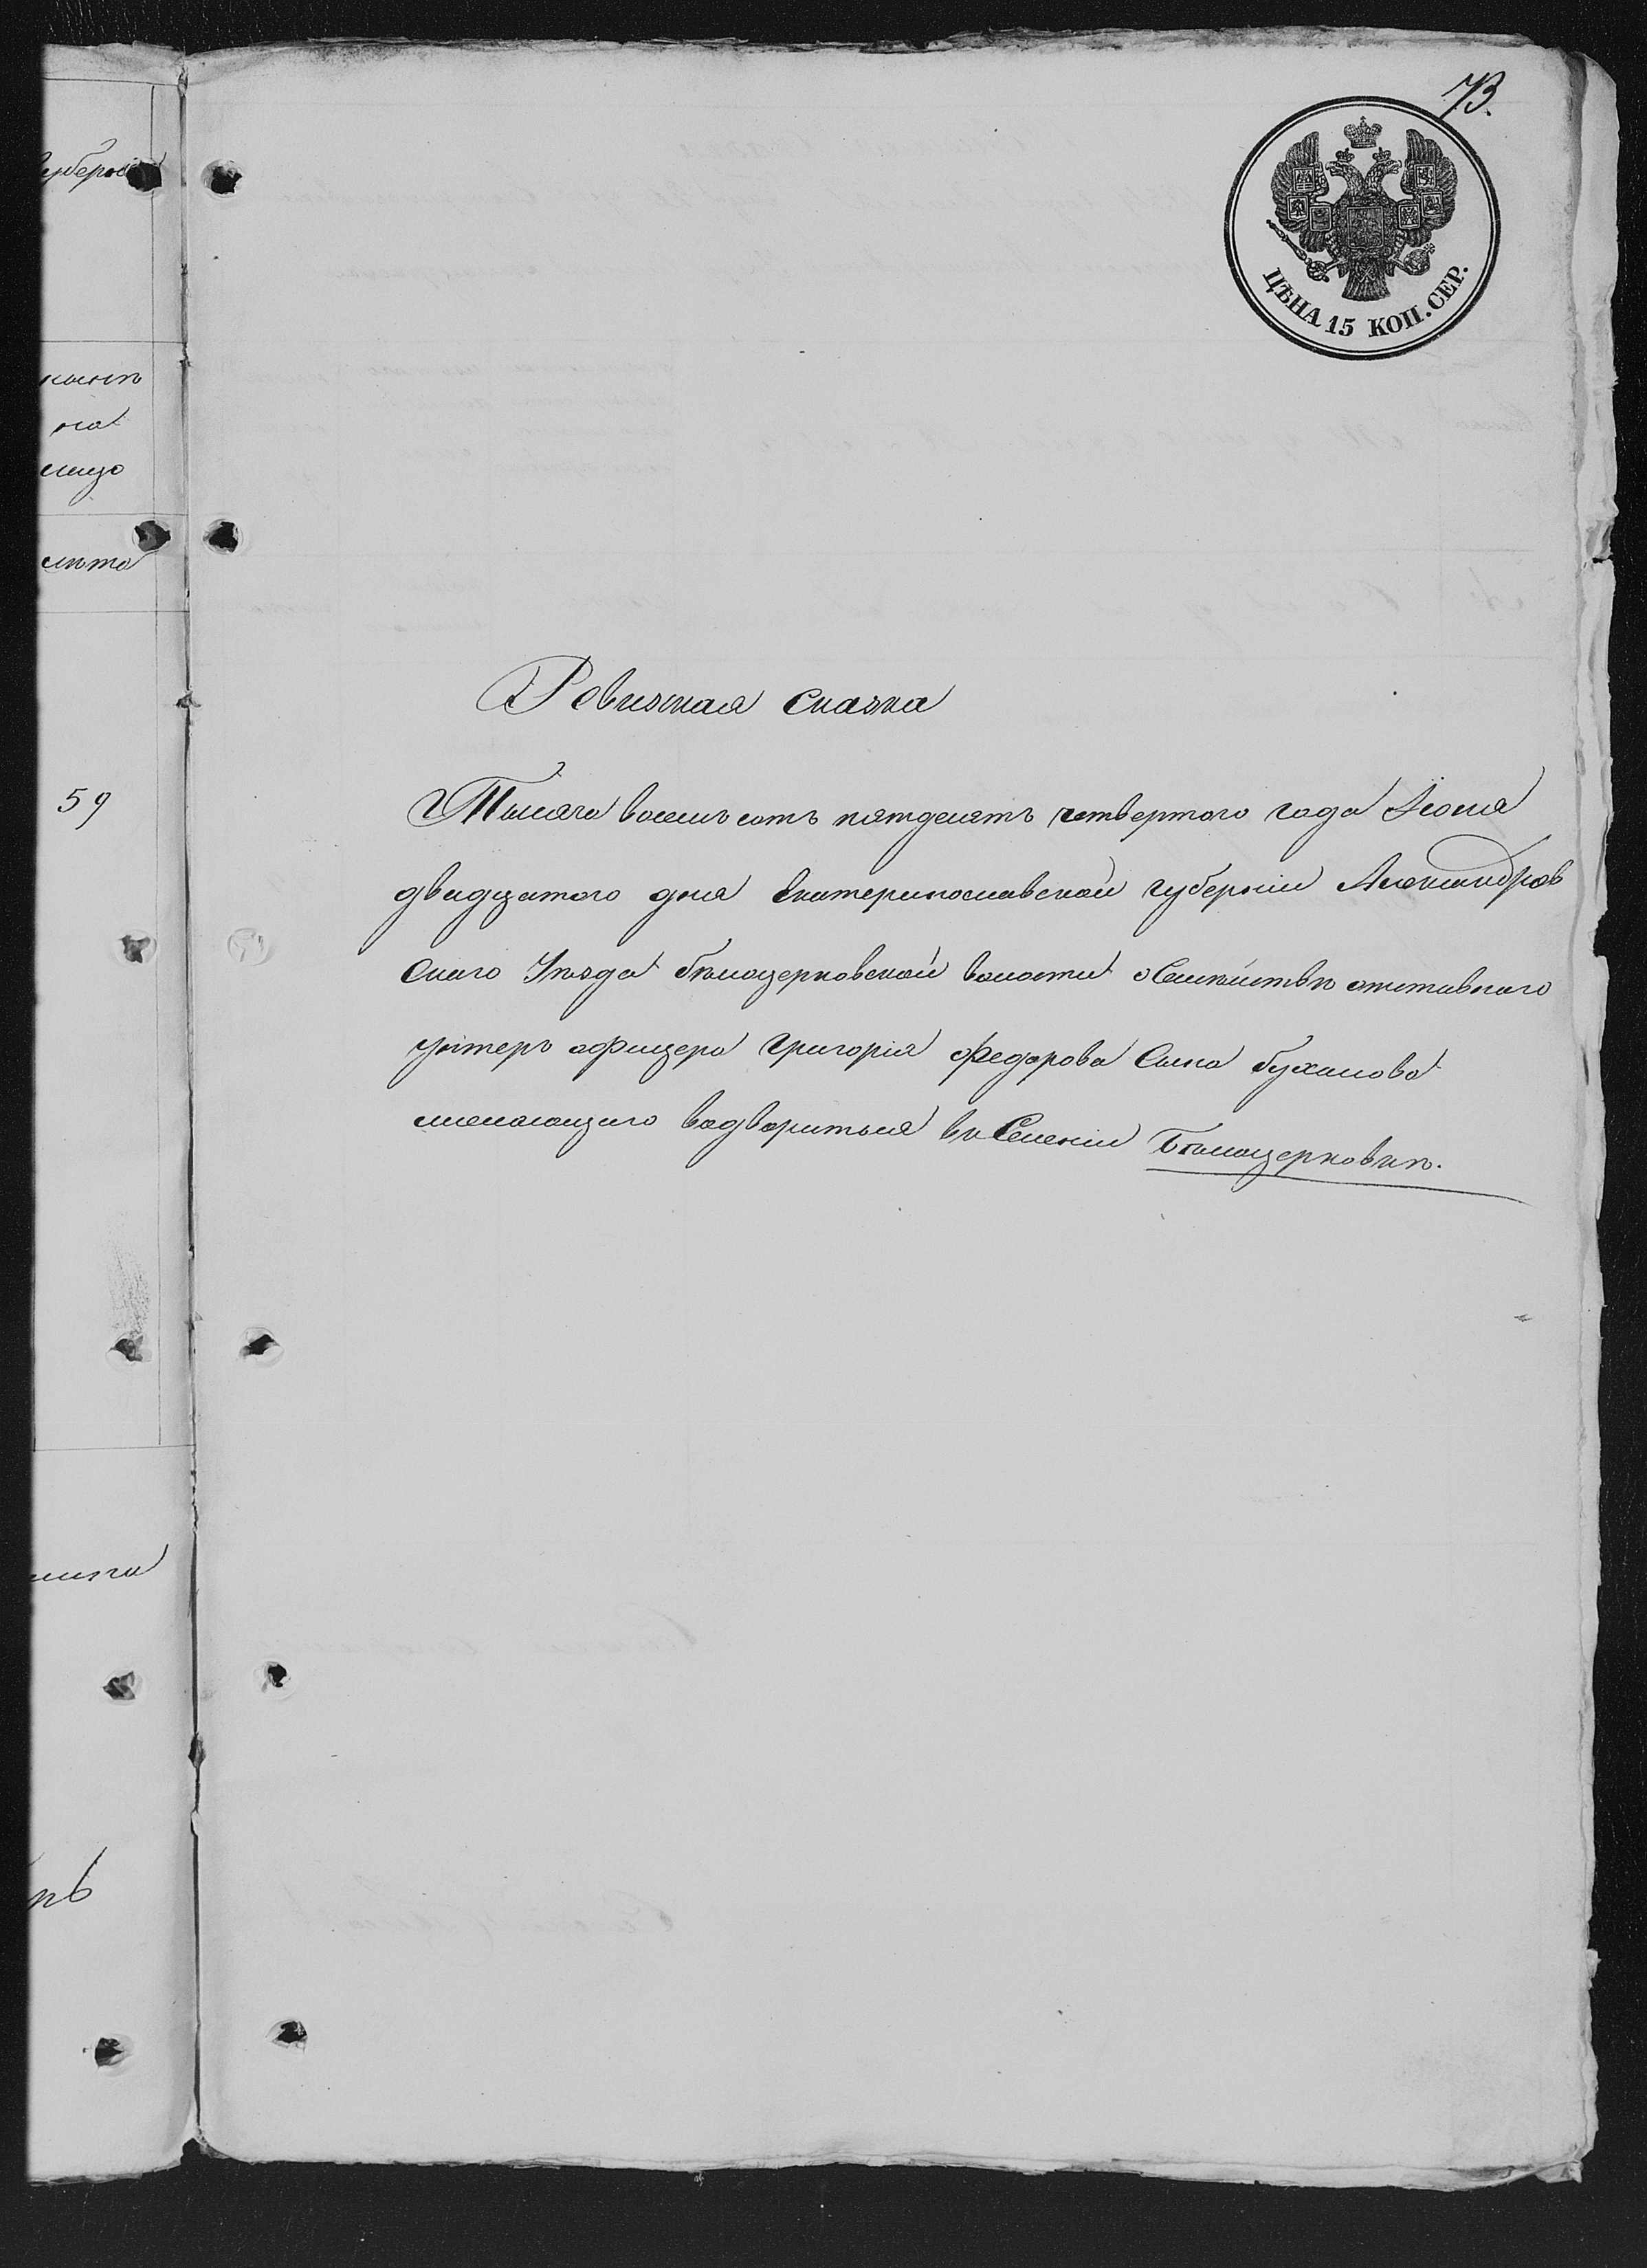 73.
ЦѢНА 15 КОП. СЕР.
губерніи
нынѣ
на
лицо
лѣта
59
Ревизская сказка
Тысяча восемь сотъ пятдесятъ четвертого года Іюня
двадцатого дня Екатеринославской губерніи Александров
скаго Уѣзда бѣлоцерковской волости о Семѣйствѣ отставнаго
унтеръ офицера Григорія Федорова Сына
желающаго водворится въ Селеніи Бѣлоцерковкѣ.